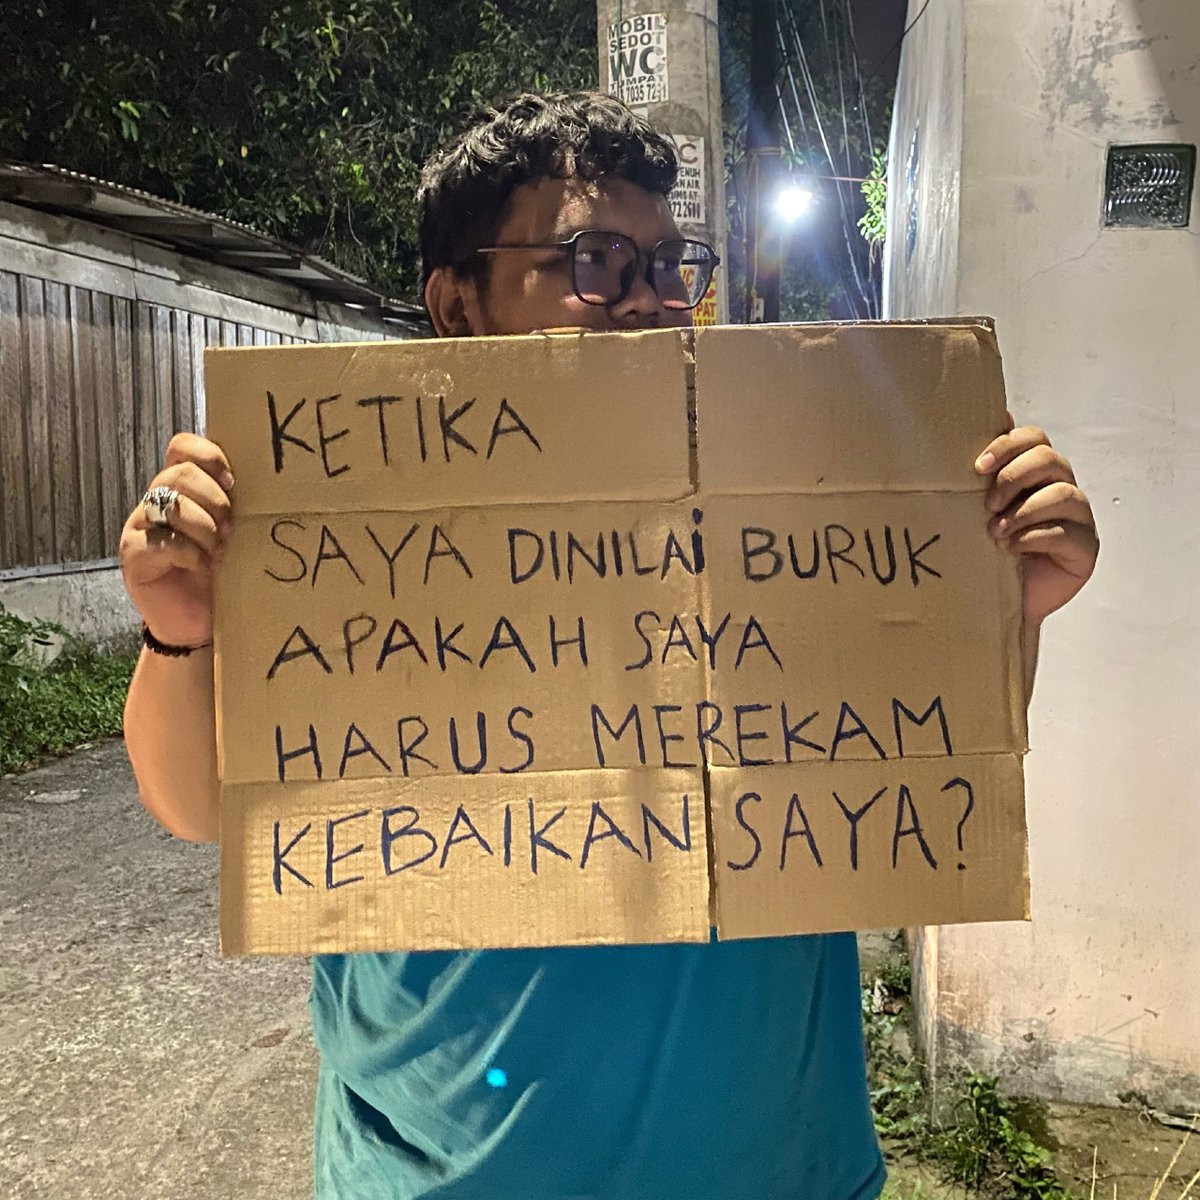 MOBIL
SEDOT
WC
7035 72
C
PENUH
AIR
KETIKA
SAYA DINILAi BURUK
APAKAH SAYA
HARUS MEREKAM
KEBAIKAN SAYA?